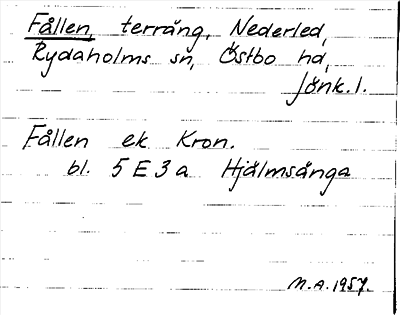 Fållen, terräng, Nederled,
Rydaholms sn, Östbo hd,
Jönk. l.
Fållen ek. Kron.
bl. 5 E 3 a Hjälmsänga
M.A. 1957.